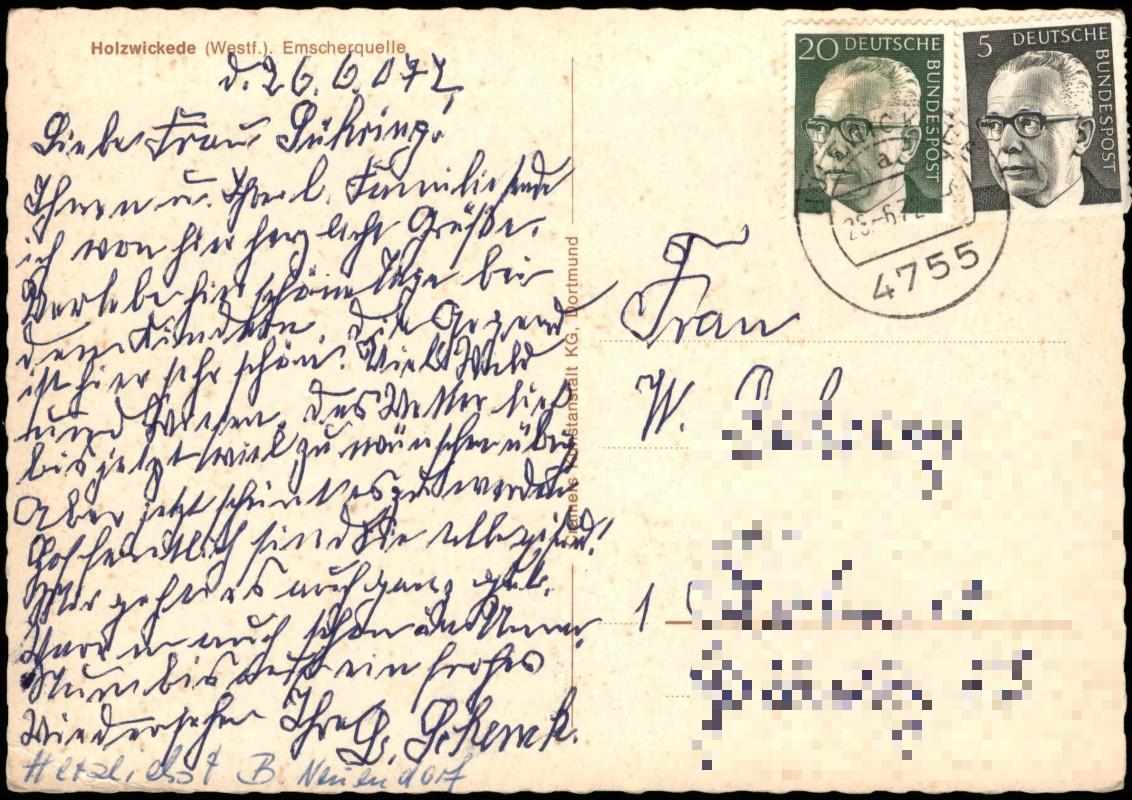 Holzwickede (Westf.). Emscherquelle
d. 26.6.072,
Liebe Frau Sühring,
Ihnen u. Ihrer l. Familie sende
ich von hier herzlichst Grüße.
Verlebe hier schöne Tage bei
den Kindern. die Gegend
ist hier sehr schön. Viel Wald
und Wiesen, das Wetter ließ
bis jetzt viel zu wünschen übrig
Aber jetzt scheint es zu werden
Hoffentlich sind Sie alle gesund!
Mir geht es auch ganz gut.
Waren auch schon
Nun bis auf ein frohes
Wiedersehen Ihre G. Schenk.
Herzlichst B. Neuendorf
Cramers Kunstanstalt KG, Dortmund
20 DEUTSCHE BUNDESPOST
5 DEUTSCHE BUNDESPOST
a
26.-6.72
4755
Frau
W.
1